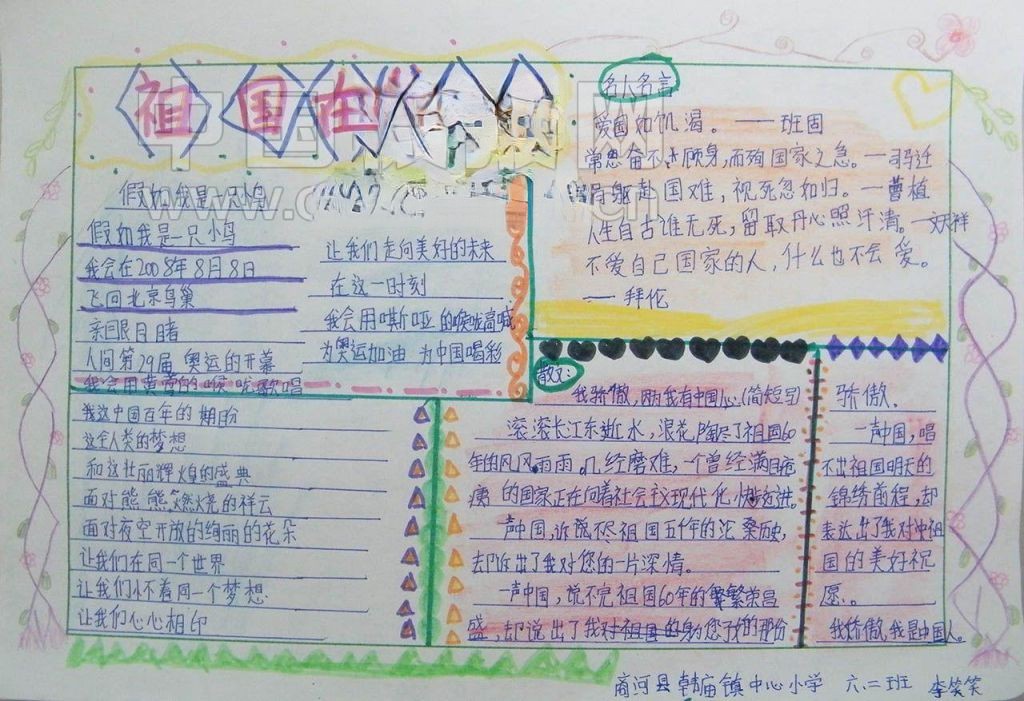 祖国在
名人名言
爱国如饥渴。——班固
常思奋不顾身,而殉国家之急。—司马迁
捐躯赴国难,视死忽如归。—曹植
人生自古谁无死,留取丹心照汗清。—文天祥
不爱自己国家的人,什么也不会爱。
——拜伦
假如我是一只小鸟
假如我是一只小鸟
我会在2008年8月8日
飞回北京鸟巢
亲眼目睹
人间第29届奥运的开幕
我会用黄莺的喉咙歌唱
我这中国百年的期盼
这全人类的梦想
和这壮丽辉煌的盛典
面对熊熊燃烧的祥云
面对夜空开放的绚丽的花朵
让我们在同一个世界
让我们怀着同一个梦想
让我们心心相印
让我们走向美好的未来
在这一时刻
我会用嘶哑的喉咙高喊
为奥运加油 为中国喝彩
散文:
我骄傲,因为我有中国心(简短写)
滚滚长江东逝水,浪花,陶尽了祖国60
年的风风雨雨。几经磨难,一个曾经满目疮
痍的国家正在向着社会主义现代化快步迈进。
一声中国,诉说不尽祖国五千年的沧桑历史,
却诉出了我对您的一片深情。
一声中国,说不完祖国60年的繁繁荣昌
盛,却说出了我对祖国的身为您子女的那份
骄傲.
一声中国,唱
不出祖国明天的
锦绣前程,却
表达出了我对中祖
国的美好祝
愿。
我骄傲,我是中国人。
商河县韩庙镇中心小学 六.二班 李笑笑